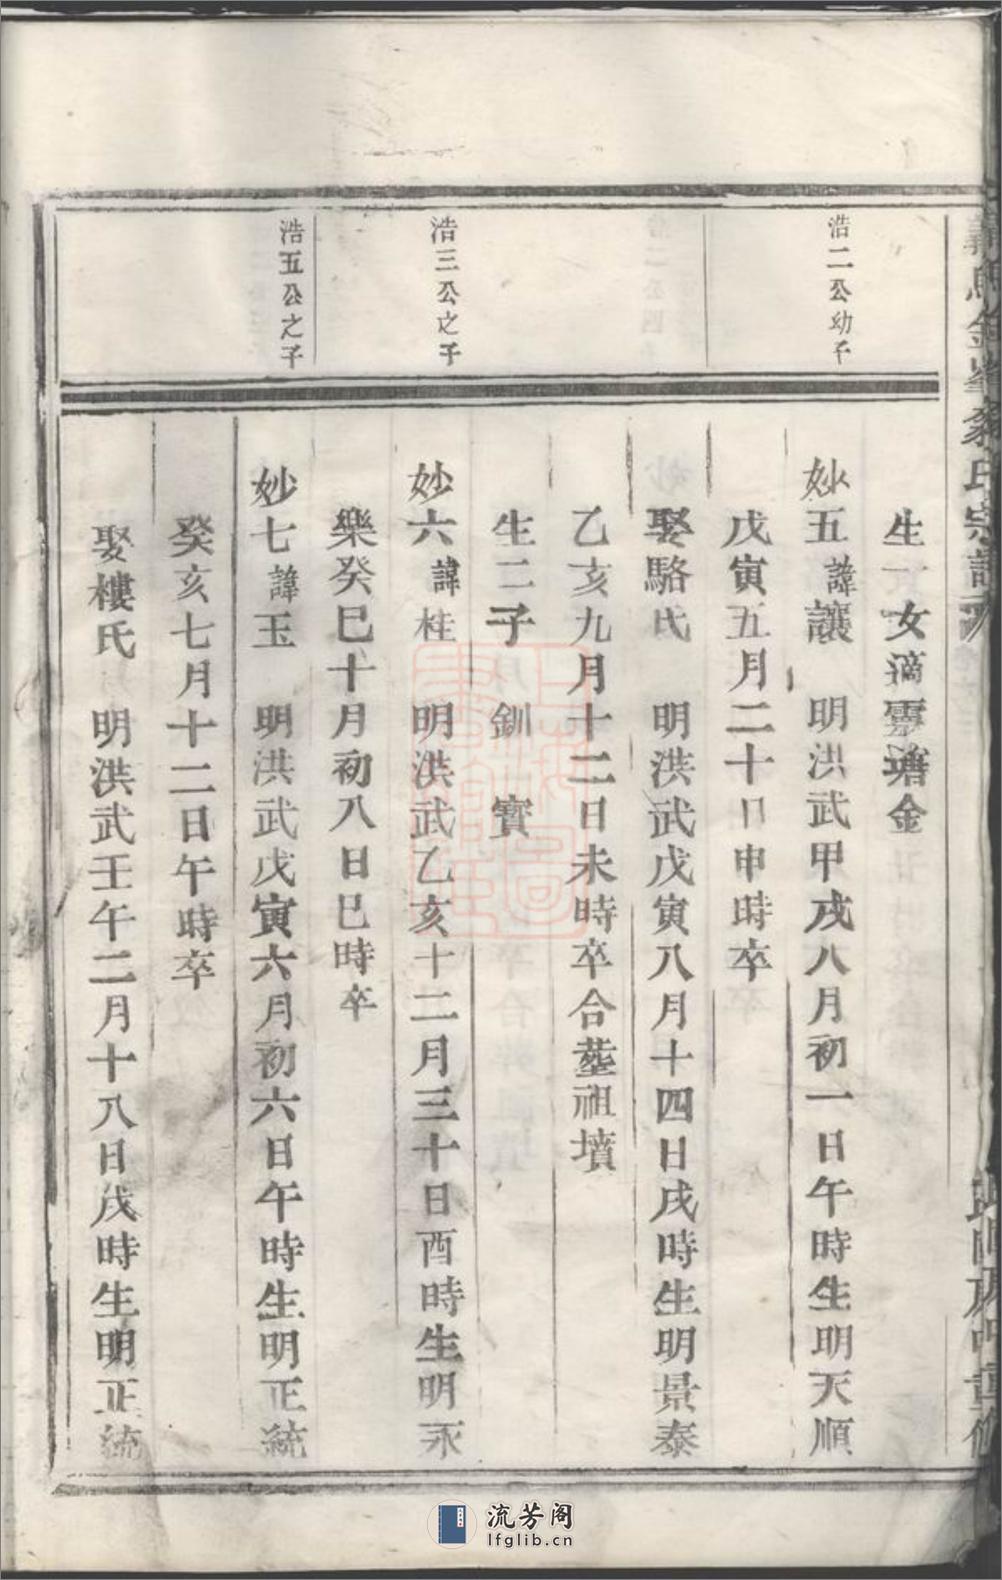 浩二公幼子
浩三公之子
浩五公之子
生一女適靈塘金
妙五諱讓 明洪武甲戌八月初一日午時生明天順
戊寅五月二十日申時卒
娶駱氏 明洪武戊寅八月十四日戌時生明景泰
乙亥九月十二日未時卒合塟祖墳
生二子 釧 寶
妙六諱桂 明洪武乙亥十二月三十日酉時生明永
樂癸巳十月初八日巳時卒
妙七諱玉 明洪武戊寅六月初六日午時生明正統
癸亥七月十二日午時卒
娶樓氏 明洪武壬午二月十八日戌時生明正統
流芳阁
lfglib.cn